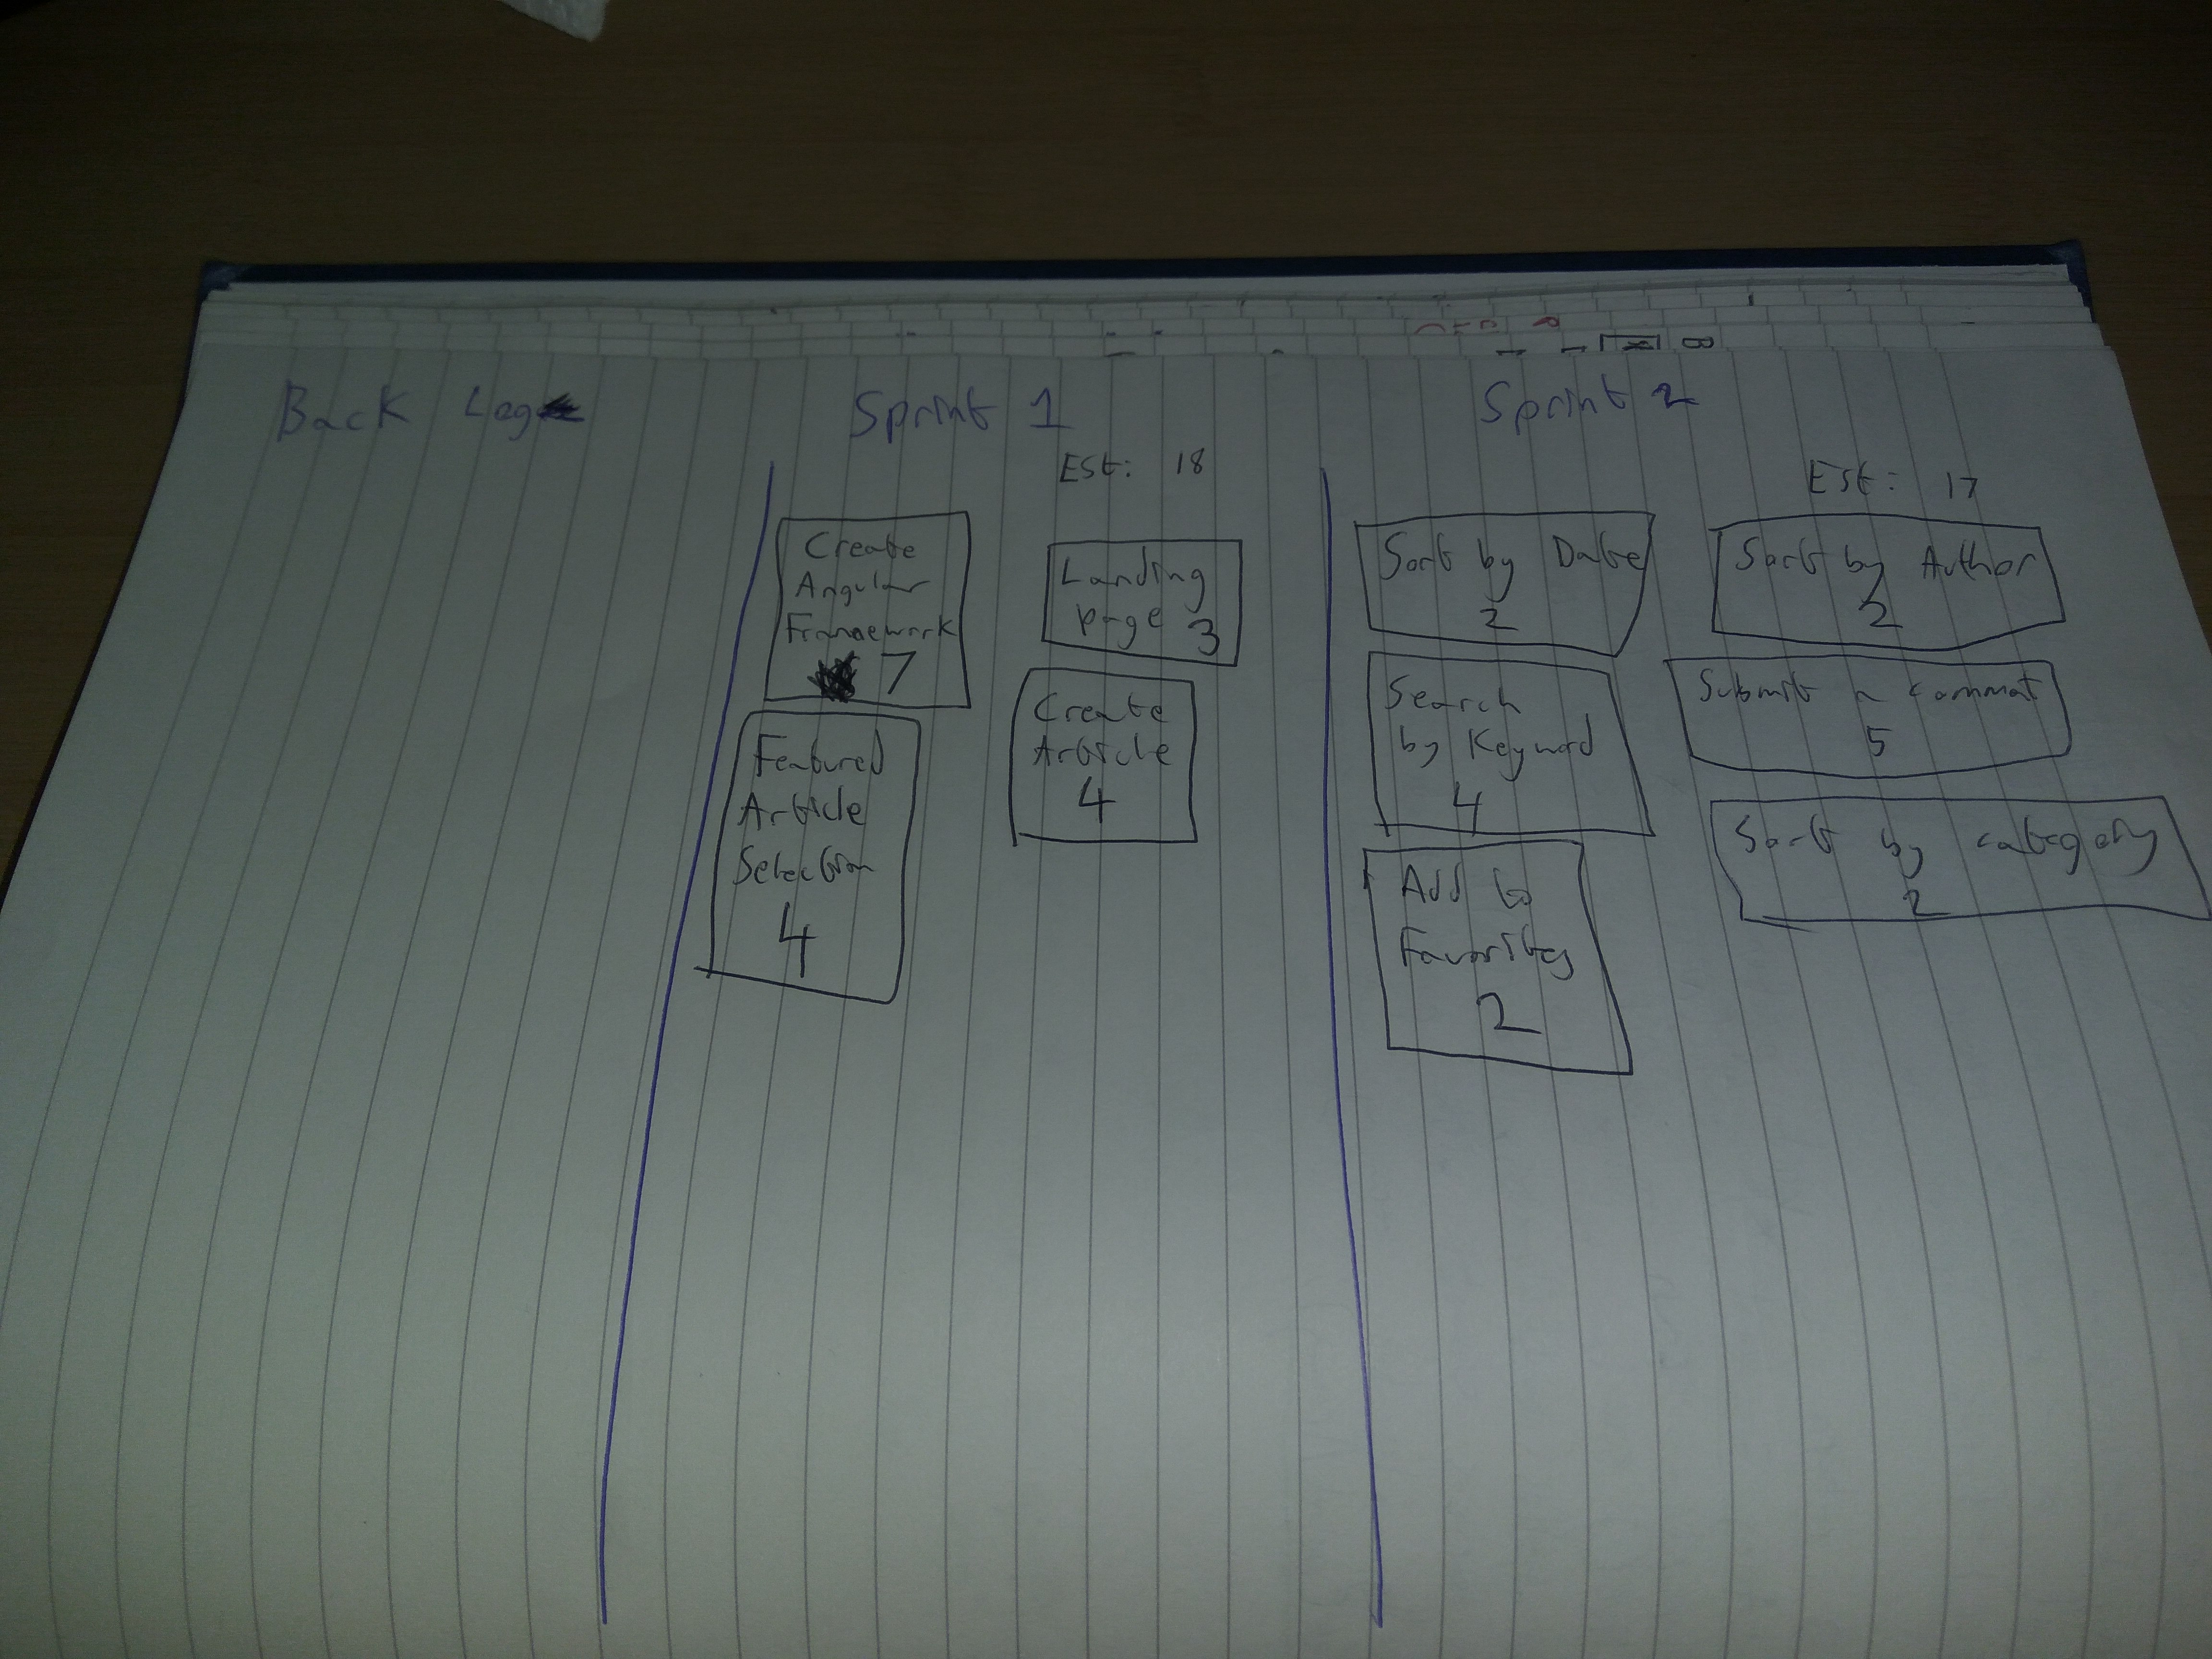 Back Log
Sprint 1
Sprint 2
Est: 18
Est: 17
Create
Angular
Framework
7
Landing
page 3
Featured
Article
Selection
4
Create
Article
4
Sort by Date
2
Sort by Author
2
Search
by Keyword
4
Submit a comment
5
Add to
Favorites
2
Sort by category
2